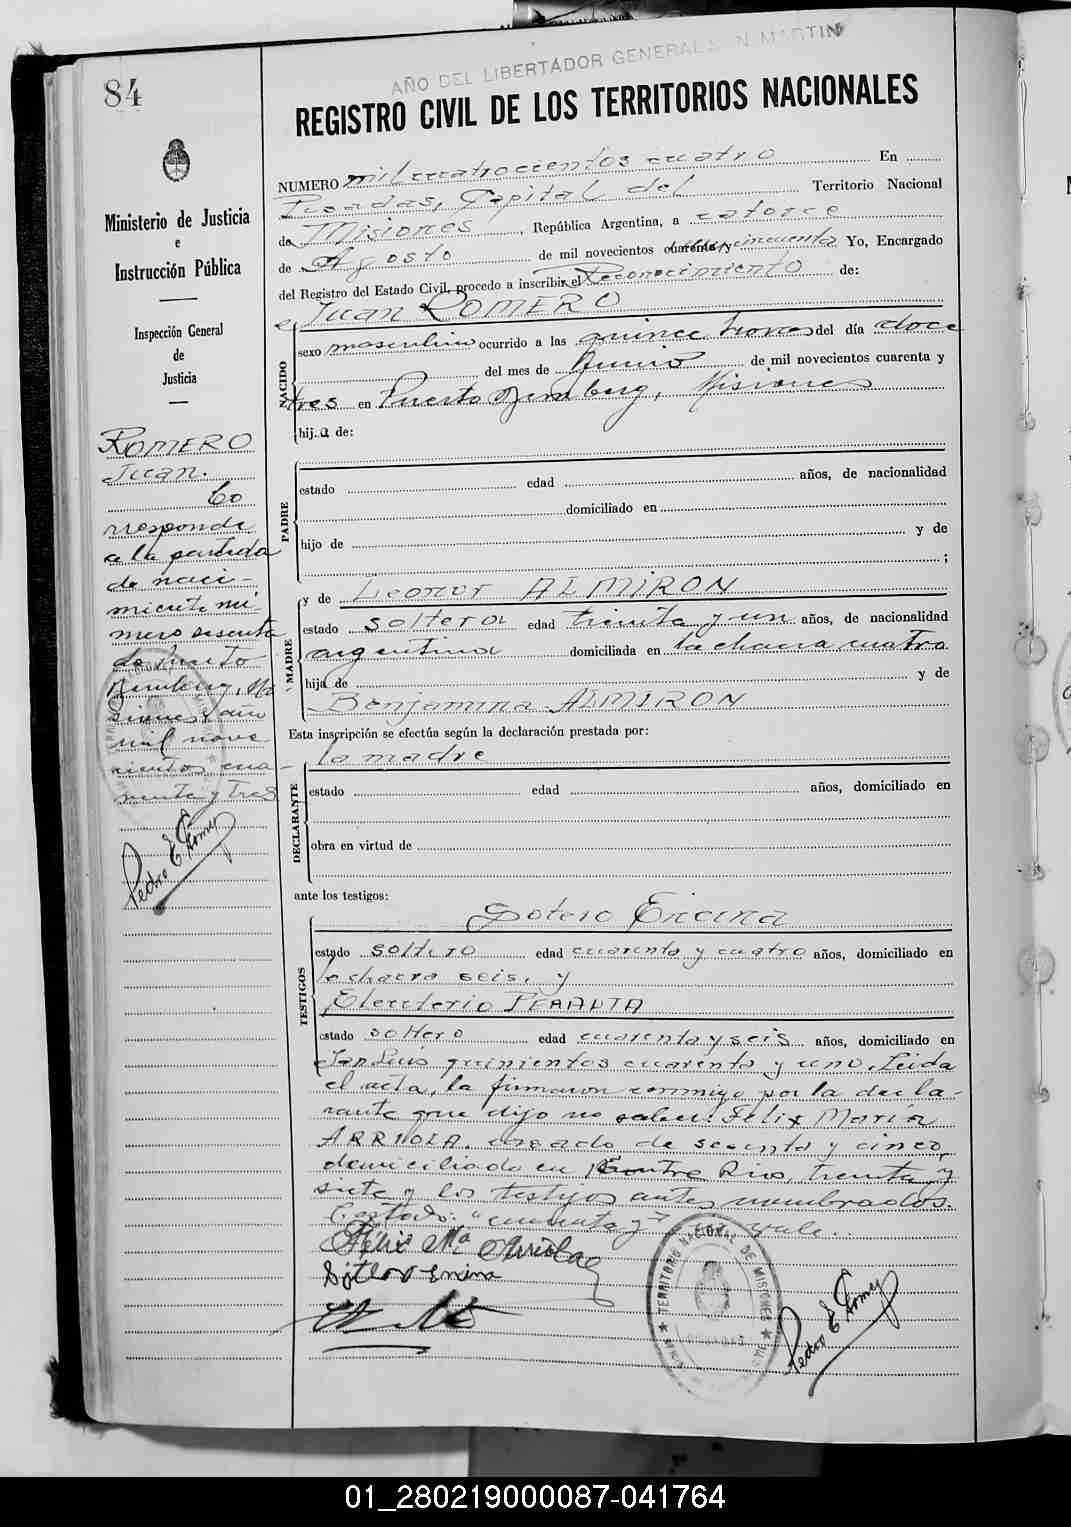 84
AÑO DEL LIBERTADOR GENERAL SAN MARTIN
REGISTRO CIVIL DE LOS TERRITORIOS NACIONALES
Ministerio de Justicia
e
Instrucción Pública
Inspección General
de
Justicia
ROMERO
Juan.
Co
rresponde
a la partida
de naci-
miento nú-
mero sesenta
de Puerto
Bemberg, Mi
siones, año
mil nove
cientos cua-
renta y tres
Pedro E. Gomez
NUMERO mil cuatrocientos cuatro En
Posadas, Capital del Territorio Nacional
de Misiones, República Argentina, a catorce
de Agosto de mil novecientos cuarenta y cincuenta Yo, Encargado
del Registro del Estado Civil, procedo a inscribir el Reconocimiento de:
Juan ROMERO
NACIDO
sexo masculino ocurrido a las quince horas del día doce
del mes de Junio de mil novecientos cuarenta y
tres en Puerto Bemberg, Misiones
hij.o de:
PADRE
estado edad años, de nacionalidad
domiciliado en
hijo de y de
;
MADRE
y de Leonor ALMIRON
estado soltera edad treinta y un años, de nacionalidad
argentina domiciliada en la chacra cuatro
hija de y de
Benjamina ALMIRON
Esta inscripción se efectúa según la declaración prestada por:
la madre
DECLARANTE
estado edad años, domiciliado en
obra en virtud de
ante los testigos:
TESTIGOS
Sotero Encina
estado soltero edad cuarenta y cuatro años, domiciliado en
la chacra seis, y
Eleuterio PERALTA
estado soltero edad cuarenta y seis años, domiciliado en
San Luis quinientos cuarenta y uno. Leida
el acta, la firmaron conmigo por la decla-
rante que dijo no saber: Felix María
ARRIOLA. casado de sesenta y cinco,
domiciliado en Entre Rios, treinta y
siete y los testigos antes nombrados.
Testado: "cuarenta y" no vale.
Felix Ma Arriola
Sotero Encina
TERRITORIO NACIONAL DE MISIONES
POSADAS
Pedro E. Gomez
01_280219000087-041764